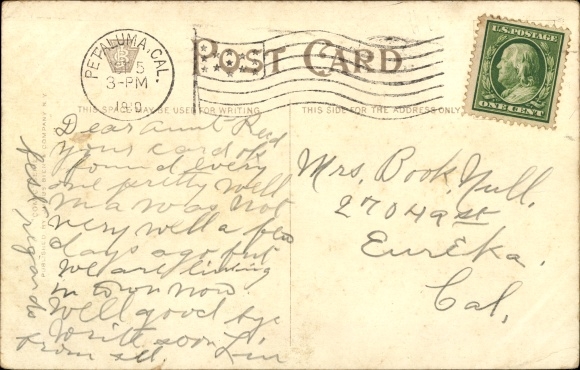 PETALUMA, CAL.
5
3-PM
POST CARD
U.S. POSTAGE
ONE CENT
THIS SPACE MAY BE USED FOR WRITING
THIS SIDE FOR THE ADDRESS ONLY
Dear Aunt Read
your card ok
found every
one pretty well
ma was not
very well a few
days ago but
we are living
in town now.
Well good bye
write soon
from all.
regards
Mrs. Book Null.
270 49st
Eureka.
Cal,